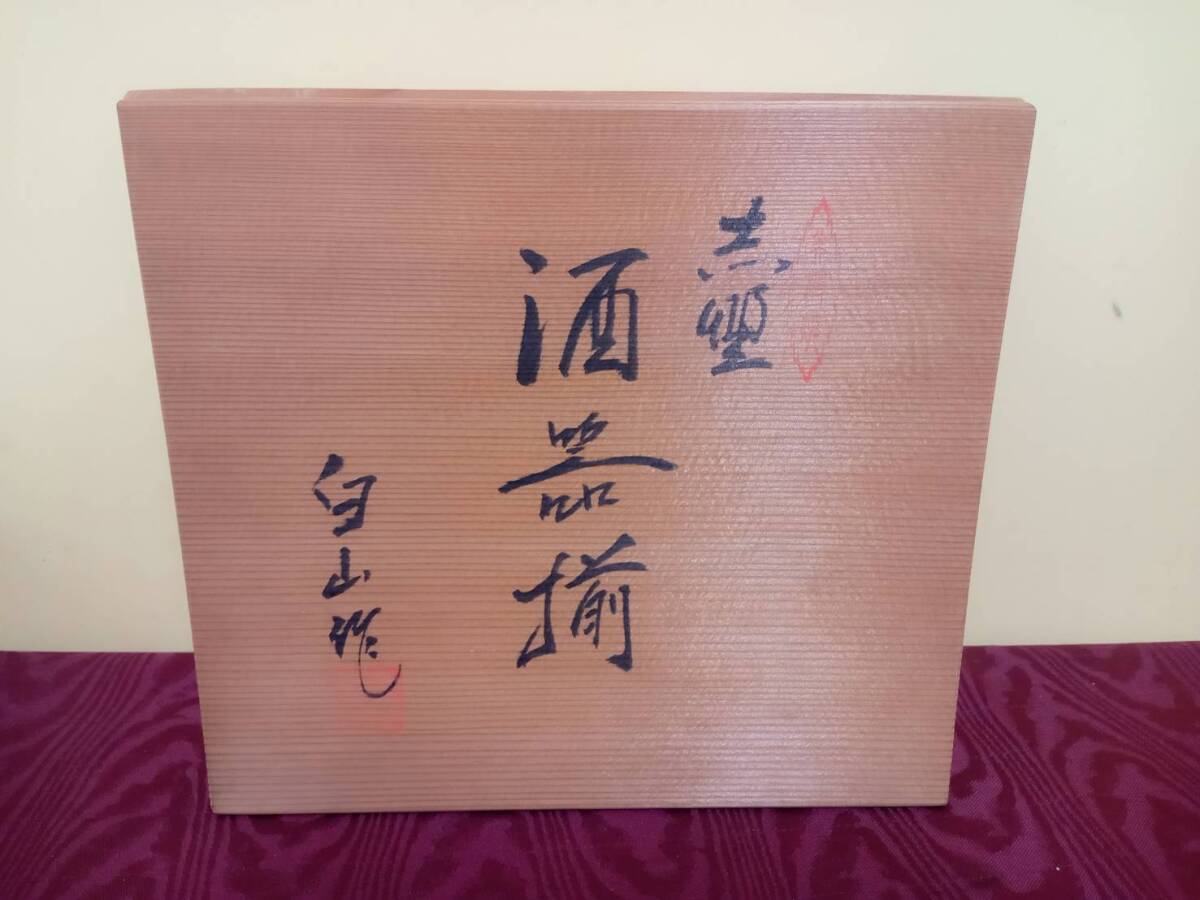 志野
酒器揃
白山作